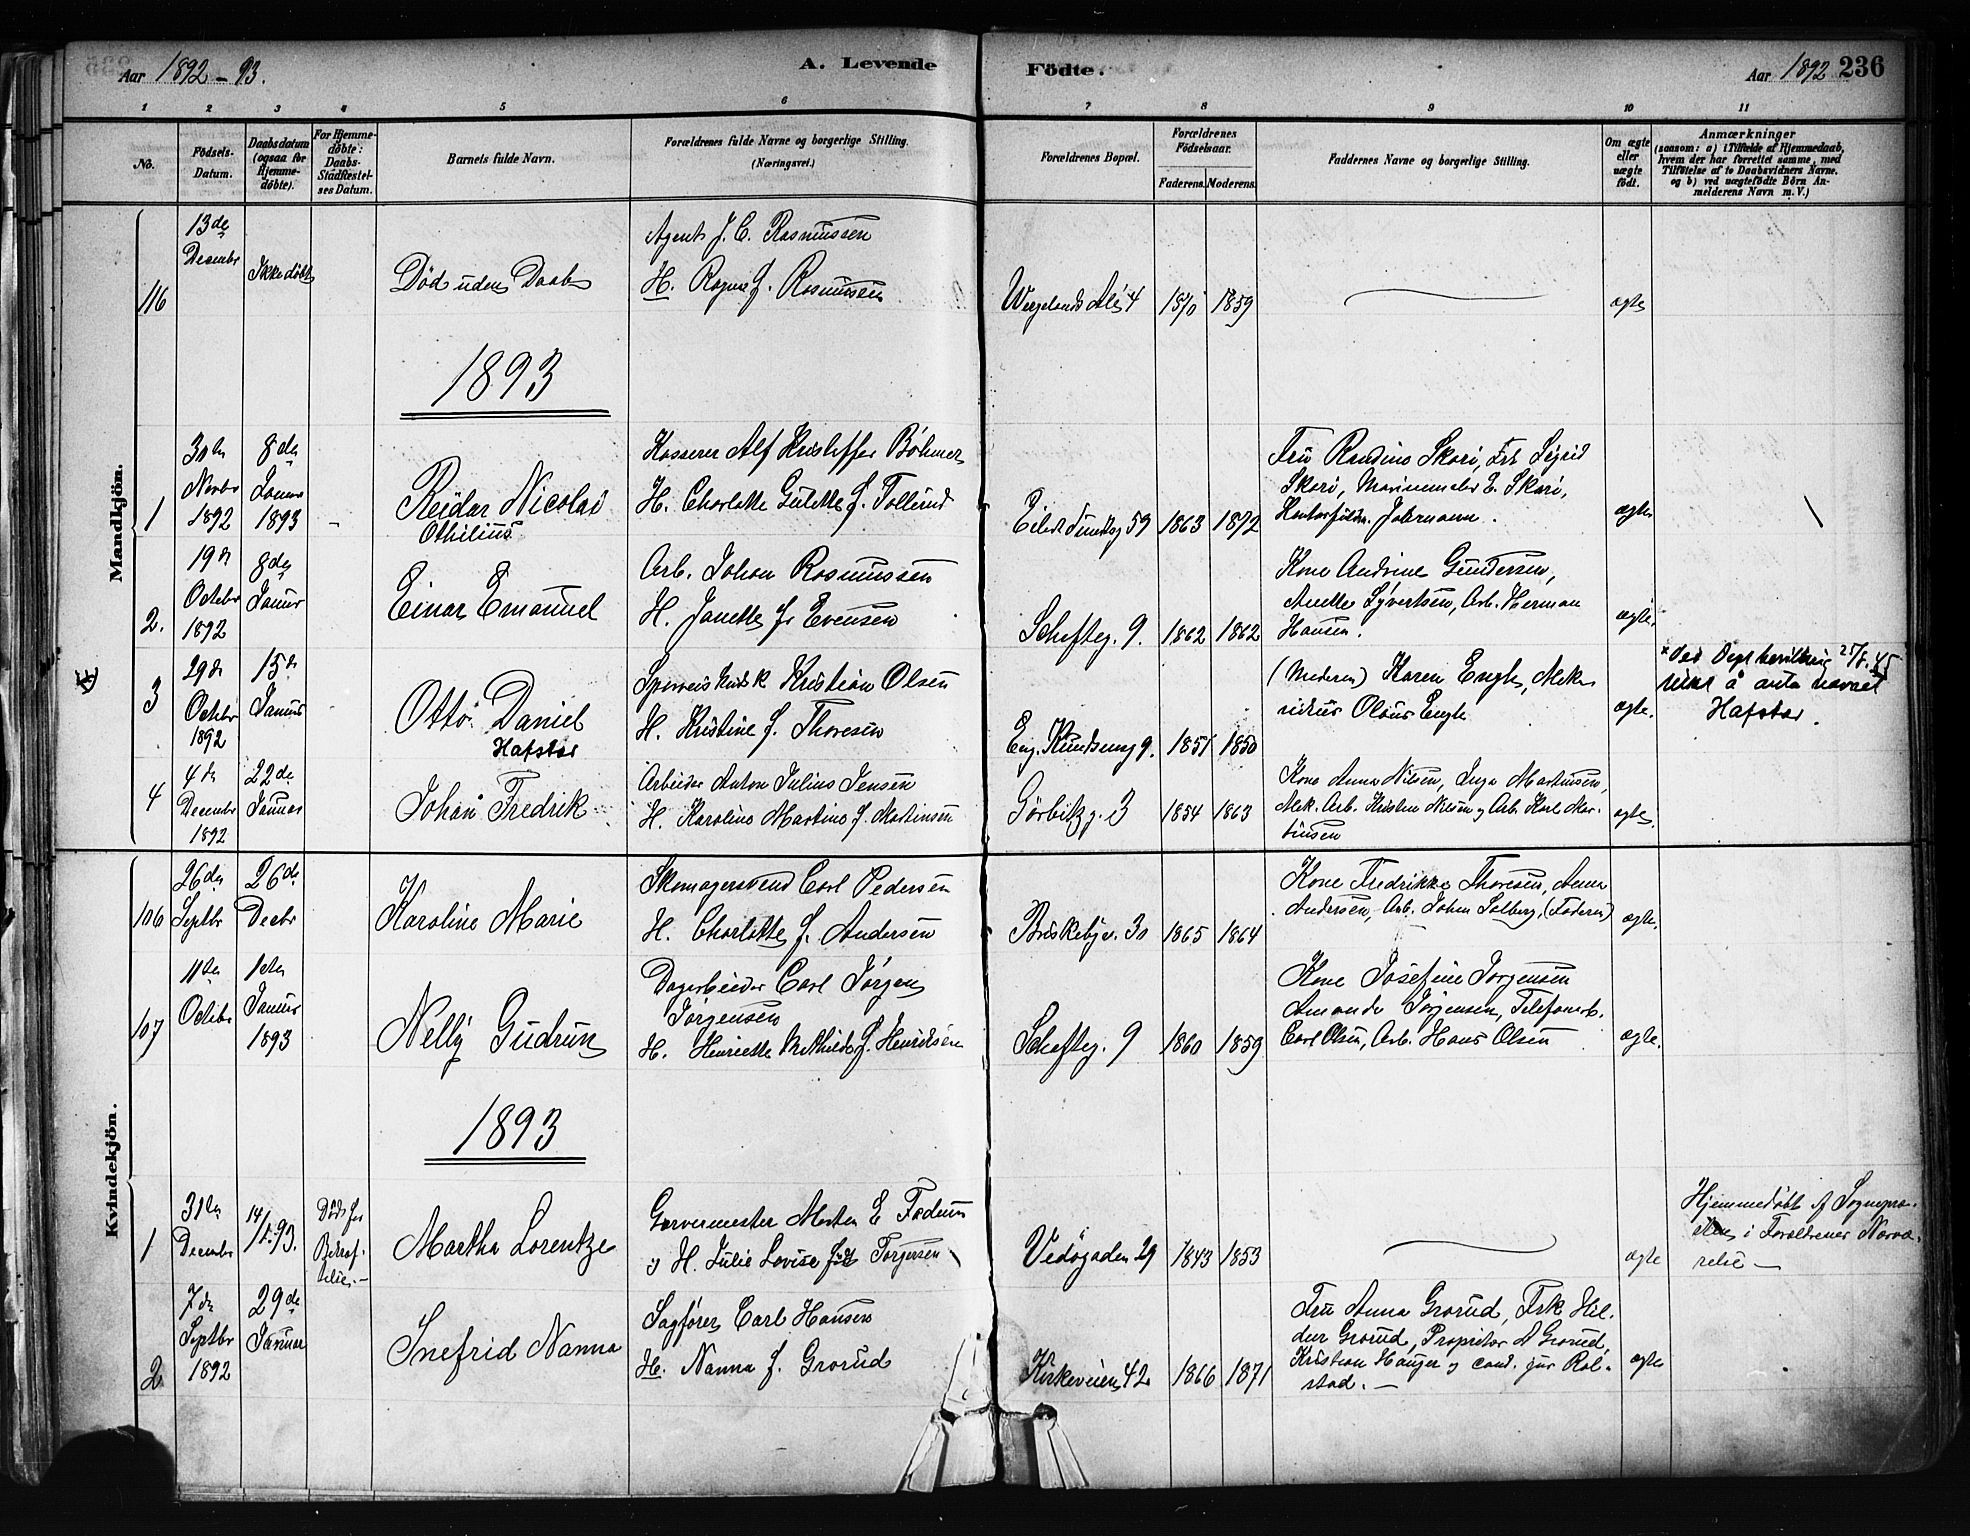 Aar 1892-93.
A. Levende Födte.
Aar 1892 236
1 2 3 4 5 6 7 8 9 10 11
No.
Födsels-Datum.
Daabsdatum (ogsaa for Hjemme-döbte).
For Hjemme-döbte: Daabs-Stadfæstel-ses Datum.
Barnets fulde Navn.
Forældrenes fulde Navne og borgerlige Stilling. (Næringsvei.)
Forældrenes Bopæl.
Forældrenes Födselsaar.
Faderens. Moderens.
Faddernes Navne og borgerlige Stilling.
Om ægte eller uægte födt.
Anmærkninger
(saasom: a) i Tilfælde af Hjemmedaab,
hvem der har forrettet samme, med
Tilföielse af to Daabsvidners Navne,
og b) ved uægtefödte Börn An-
melderens Navn m. V.)
Mandkjön.
116
13de Decembr
Ikke döbt
Död uden Daab
Agent J. C. Rasmussen
H. Ragna f. Rasmussen
Wergelands Alé 4
1870 1859
ægte
1893
1
30te Novbr 1892
8de Januar 1893
Reidar Nicolai
Othilius
Kasserer Alf Kristoffer Böhmer
H. Charlotte Gulette f. Tollund
Eilert Sundtsg 59
1863 1872
Fru Randine Skari, Frk Sigrid
Skari, Marinemaler E. Skari,
ægte
2.
19de Octobr 1892
8de Januar
Einar Emanuel
Arb. Johan Rasmussen
H. Janette f. Evensen
Schefteg. 9.
1862 1862
Kone Andrine Gundersen,
Anette Syvertsen, Arb. Herman
Hansen.
ægte.
3
29de Octobr 1892
15de Januar
Otto Daniel
Hafstar
Sporveiskusk Kristian Olsen
H. Kristine f. Thoresen
Eug. Kundsensg 9.
1851 1850
(Moderen) Karen Engh,
Olaus Engh
ægte.
* Ved Dept bevilling 25/8.45
rett å anta navnet
Hafstar.
4
4de Decembr 1892
22de Januar
Johan Fredrik
Arbeider Anton Julius Jensen
H. Karoline Martine f. Martinsen
Görbitzg. 3
1854 1863
Kone Anna Nilsen, Inga Martinsen,
Mek. Arb. Kristen Nilsen og Arb. Karl Mar-
tinsen
ægte.
Kvindekjön.
106
26de Septbr
26de Decbr
Karoline Marie
Skomagersvend Carl Pedersen
H. Charlotte f. Andersen
Briskebyv. 30
1865 1864
Kone Fredrikke Thoresen, Anna
Andersen, Arb. Johan Solberg, (Faderen)
ægte.
107
11te Octobr
1ste Januar 1893
Nelly Gudrun
Dagarbeider Carl Jörgen
Jörgensen
H. Henriette Mathilde f. Henriksen
Schefteg. 9
1860 1859
Kone Josefine Jörgensen
Amanda Jörgensen, Telefonarb.
Carl Olsen, Arb. Hans Olsen
ægte.
1893
1
31te Decembr
14/1.93.
Död för Bekræf-telsen.-
Martha Lorentze
Garvermester Morten E Fadum
og H. Julie Lovise født Torgersen
Vedøgaden 29
1843 1853
ægte
Hjemmedöbt af Sognepræ-
sten i Forældrenes Nærvæ-
relse -
2
7de Septbr 1892
29de Januar
Snefrid Nanna
Sagförer Carl Hansen
H. Nanna f. Grorud
Kirkeveien 42
1866 1871
Fru Anna Grorud, Frk Hil-
dur Grorud, Proprietær A Grorud,
Kristian Hauger og cand. jur Rol-
stad. -
ægte